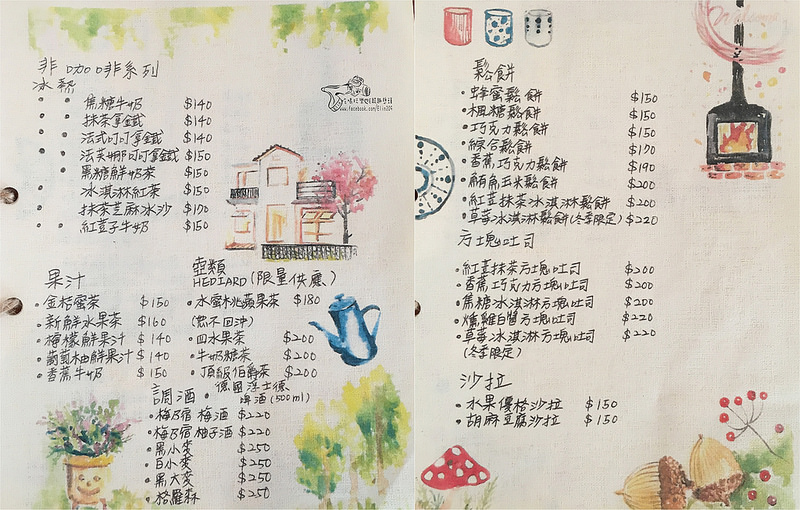 非咖啡系列
冰 熱
• • 焦糖牛奶 $140
• • 抹茶拿鐵 $140
• • 法式可可拿鐵 $140
• • 法芙娜可可拿鐵 $150
• 黑糖鮮奶茶 $150
• 冰淇淋紅茶 $150
• 抹茶芝麻冰沙 $170
• • 紅荳牛奶 $150
果汁
•金桔蜜茶 $150
•新鮮水果茶 $160
•檸檬鮮果汁 $140
•葡萄柚鮮果汁 $140
•香蕉牛奶 $150
壺類
HEDIARD(限量供應)
•水蜜桃蘋果茶 $180
(恕不回沖)
•四水果茶 $200
•牛奶糖茶 $200
•頂級伯爵茶 $200
調酒
•德國浮士德
啤酒(500ml)
•梅乃宿 梅酒 $220
•梅乃宿 柚子酒 $220
•黑小麥 $250
•白小麥 $250
•黑大麥 $250
•格羅森 $250
鬆餅
•蜂蜜鬆餅 $150
•楓糖鬆餅 $150
•巧克力鬆餅 $150
•綜合鬆餅 $170
•香蕉巧克力鬆餅 $190
•鮪魚玉米鬆餅 $200
•紅荳抹茶冰淇淋鬆餅 $200
•草莓冰淇淋鬆餅(冬季限定) $220
方塊吐司
•紅荳抹茶方塊吐司 $200
•香蕉巧克力方塊吐司 $200
•焦糖冰淇淋方塊吐司 $200
•燻雞白醬方塊吐司 $220
•草莓冰淇淋方塊吐司 $220
(冬季限定)
沙拉
•水果優格沙拉 $150
•胡麻豆腐沙拉 $150